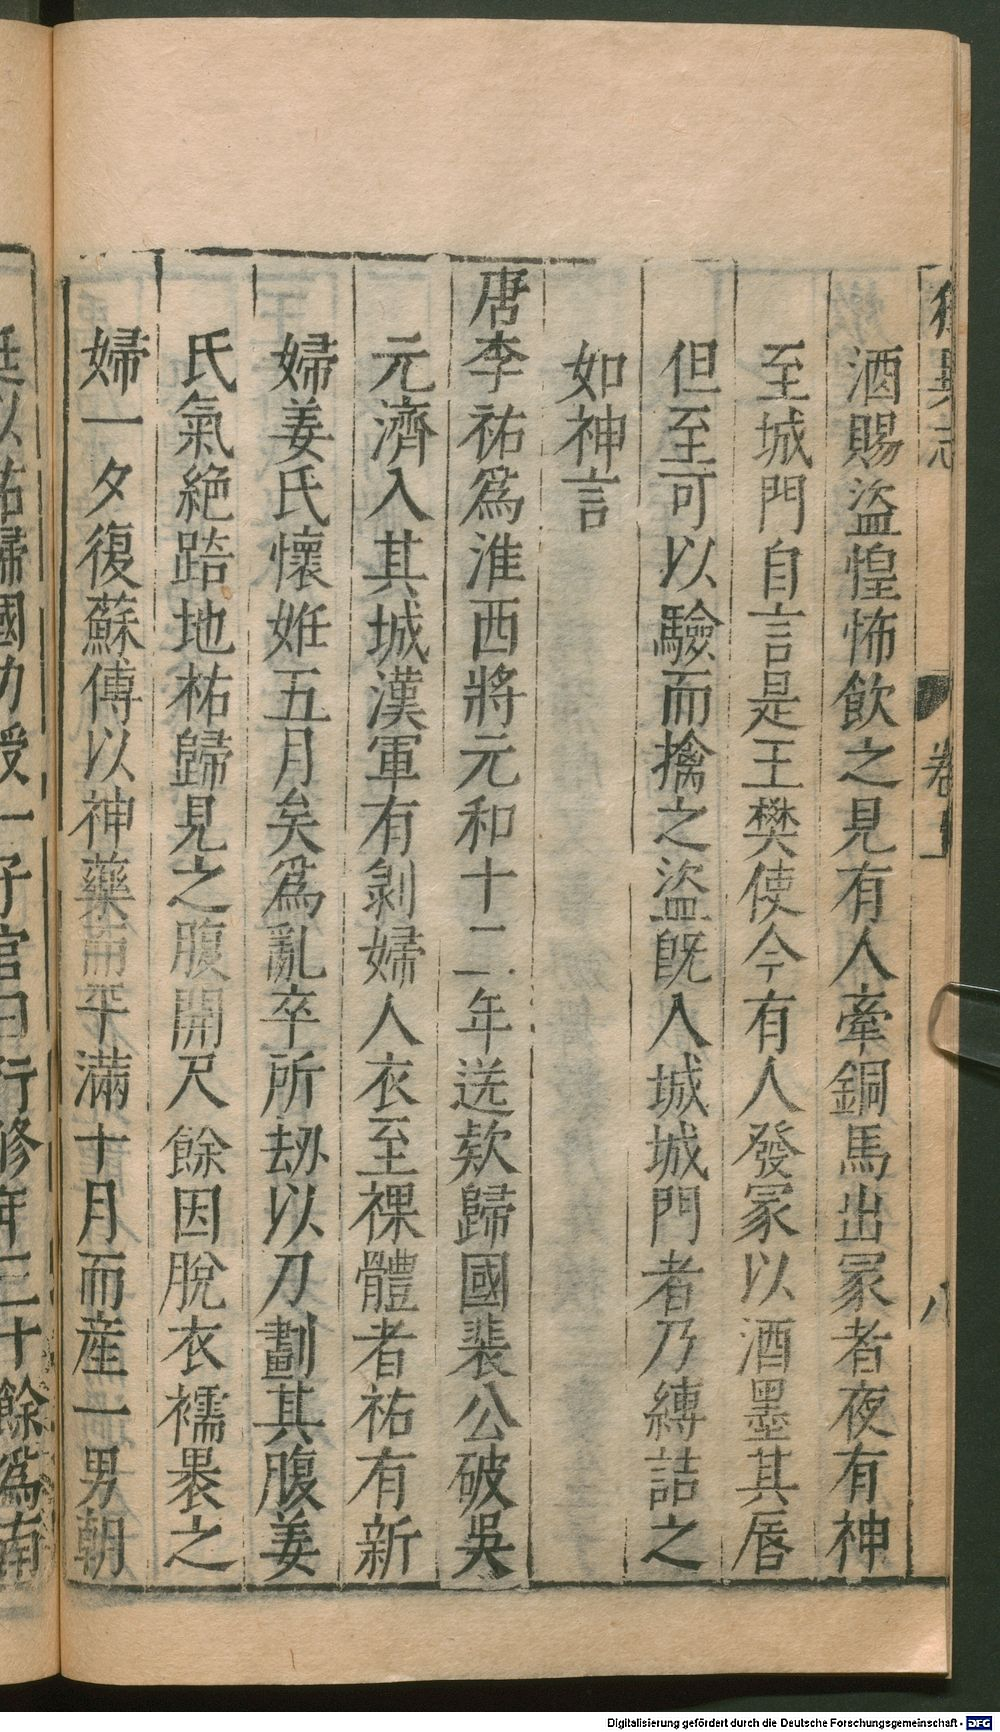 卷
八
酒賜盜惶怖飲之見有人牽銅馬出冢者夜有神
至城門自言是王樊使今有人發冢以酒墨其唇
但至可以驗而擒之盜旣入城城門者乃縛詰之
如神言
唐李祐爲淮西將元和十二年送欵歸國裴公破吳
元濟入其城漢軍有剝婦人衣至裸體者祐有新
婦姜氏懷姙五月矣爲亂卒所刼以刀劃其腹姜
氏氣絶踣地祐歸見之腹開尺餘因脫衣襦褁之
婦一夕復蘇傅以神藥而平滿十月而産一男朝
廷以祐歸國功授一子官曰行修年三十餘爲南
Digitalisierung gefördert durch die Deutsche Forschungsgemeinschaft - DFG